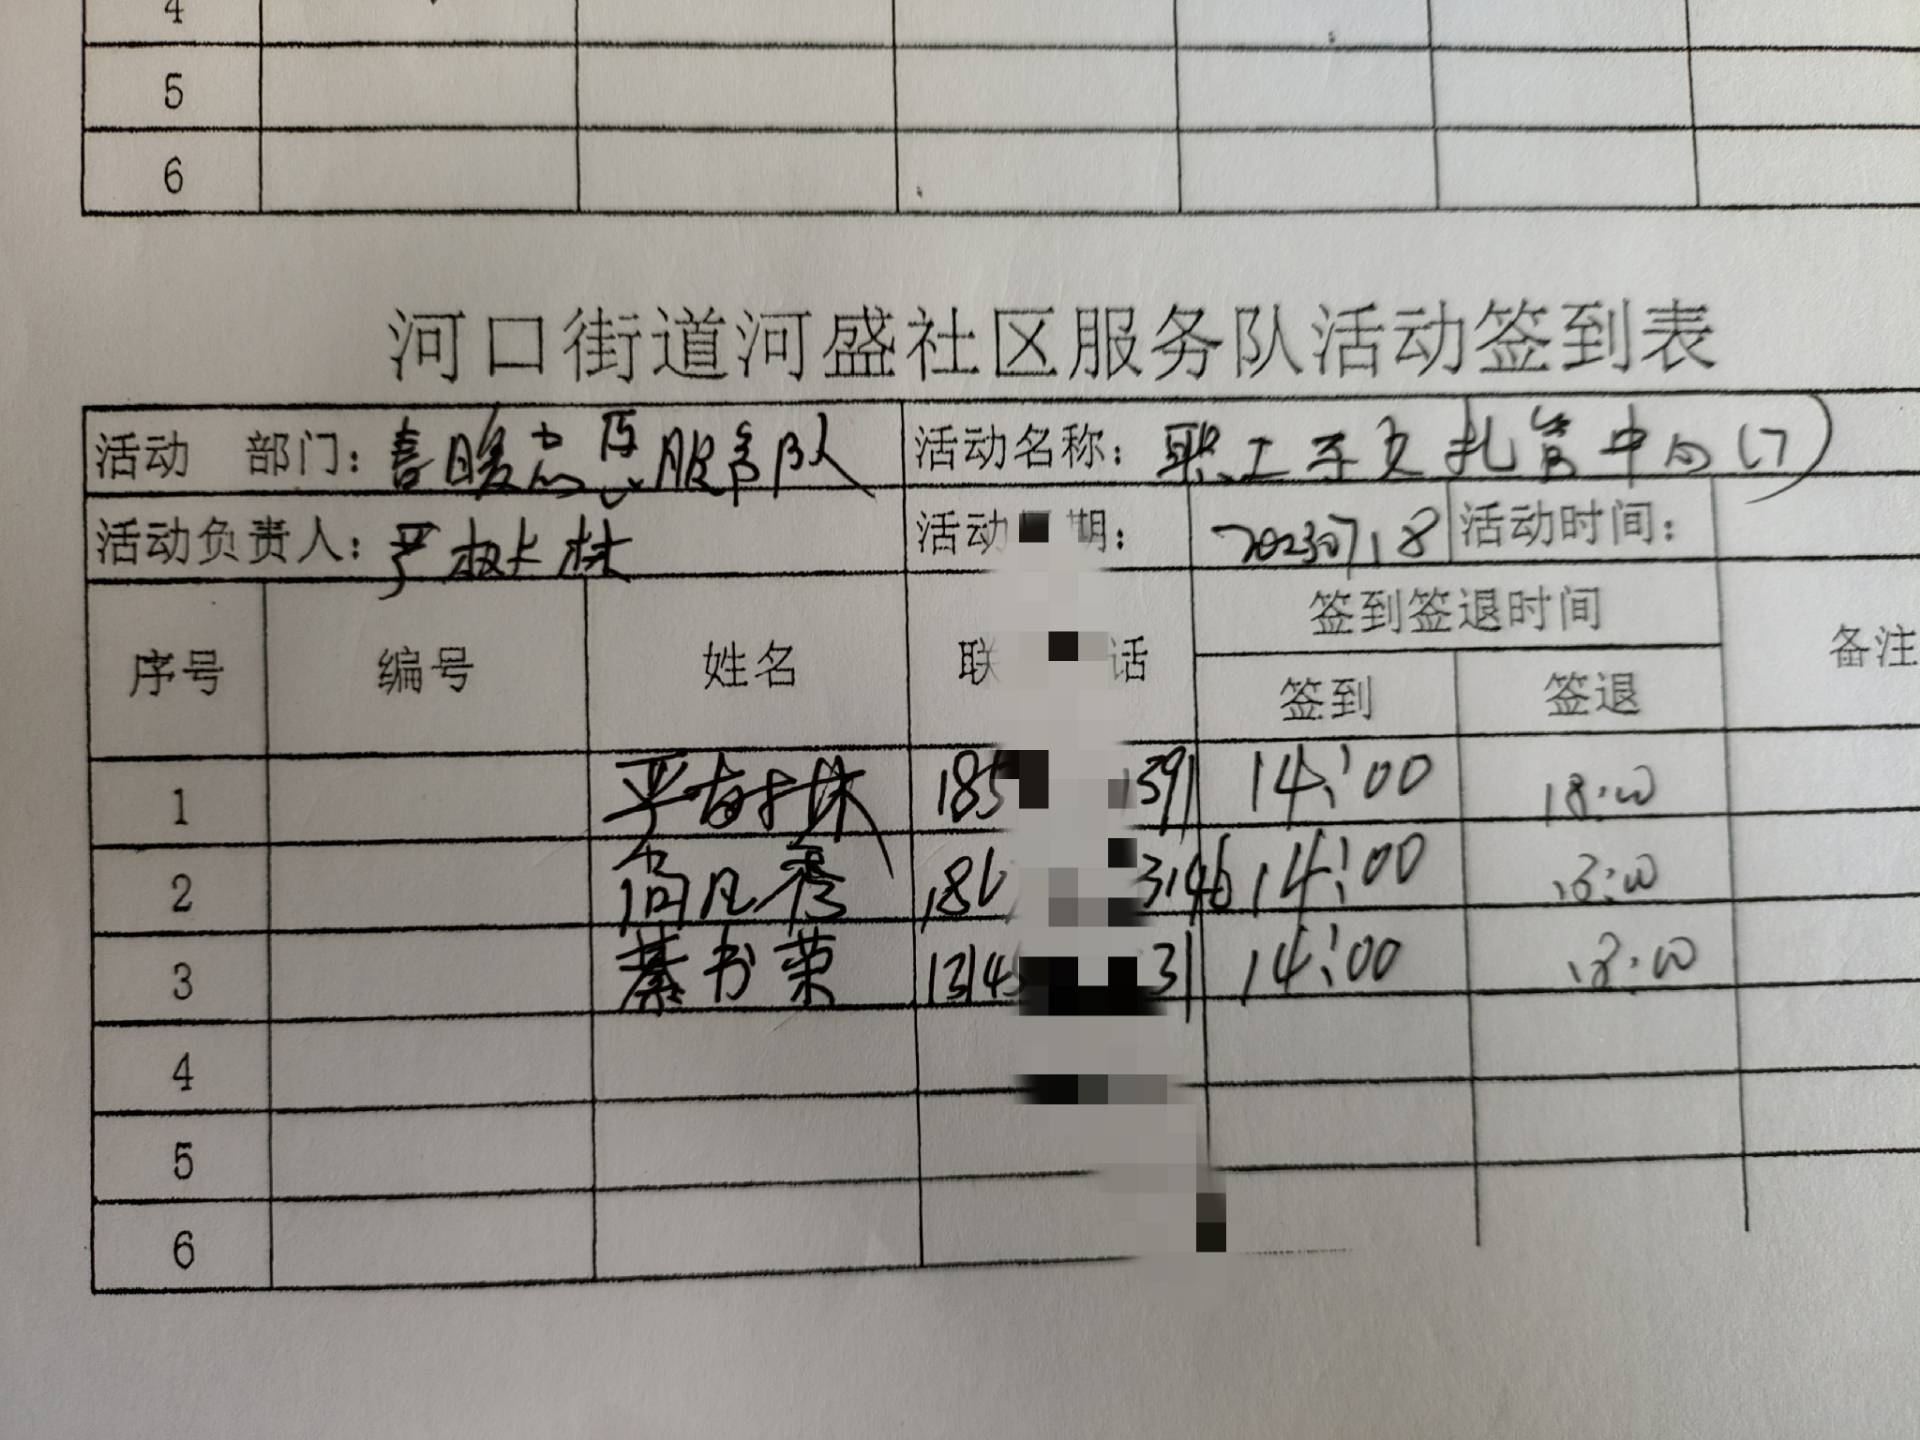 4
5
6
河口街道河盛社区服务队活动签到表
活动 部门：喜暖志愿服务队 活动名称：职工子女托管中心(7)
活动负责人：严树林 活动 期： 2023 07 18 活动时间：
序号 编号 姓名 联 话 签到签退时间 备注
签到 签退
1 185 1391 14:00 18:00
2 186 3146 14:00 18:00
3 綦书荣 1314 31 14:00 18:00
4
5
6